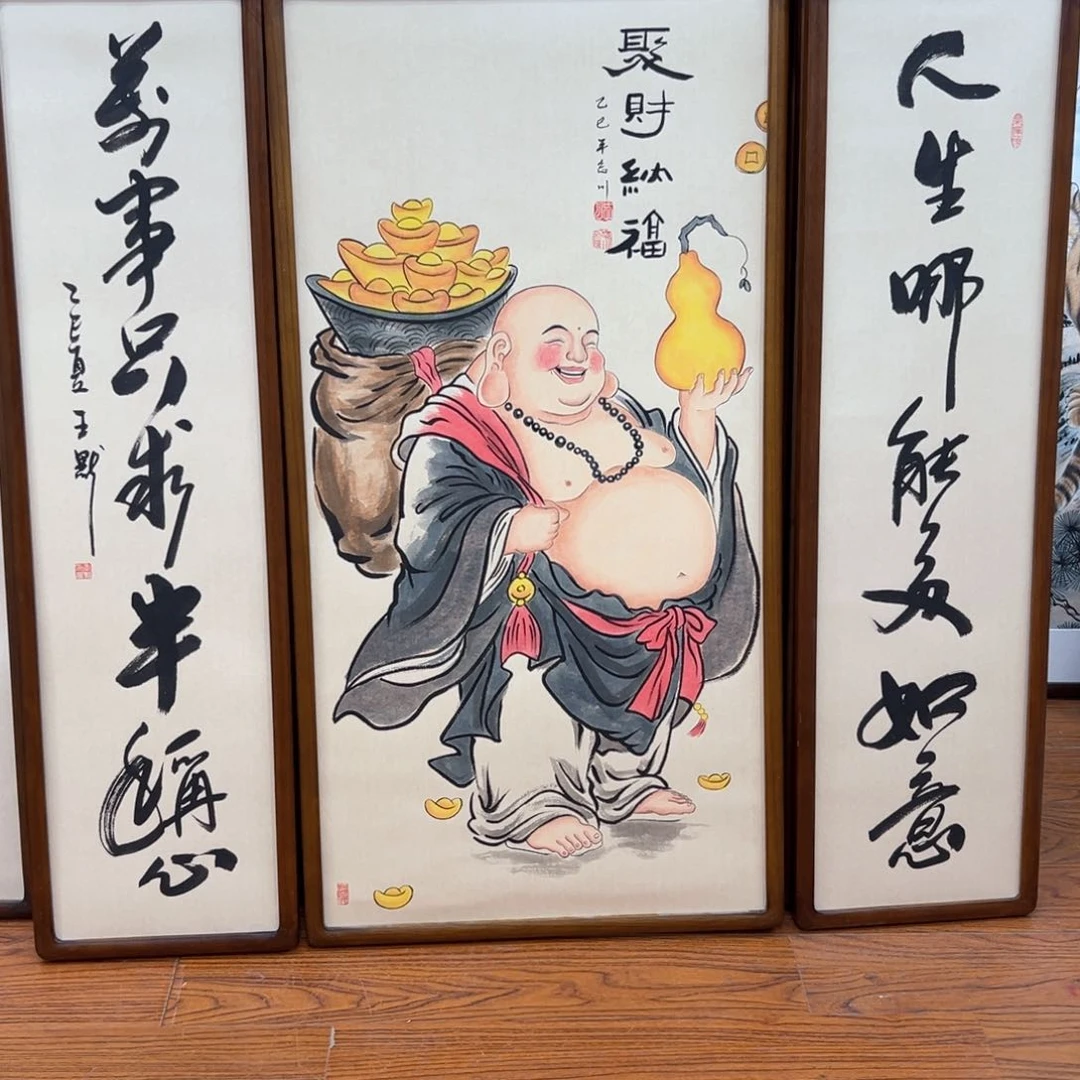 人生哪能多如意
聚財納福
乙巳年志川
萬事只求半稱心
乙巳夏王默